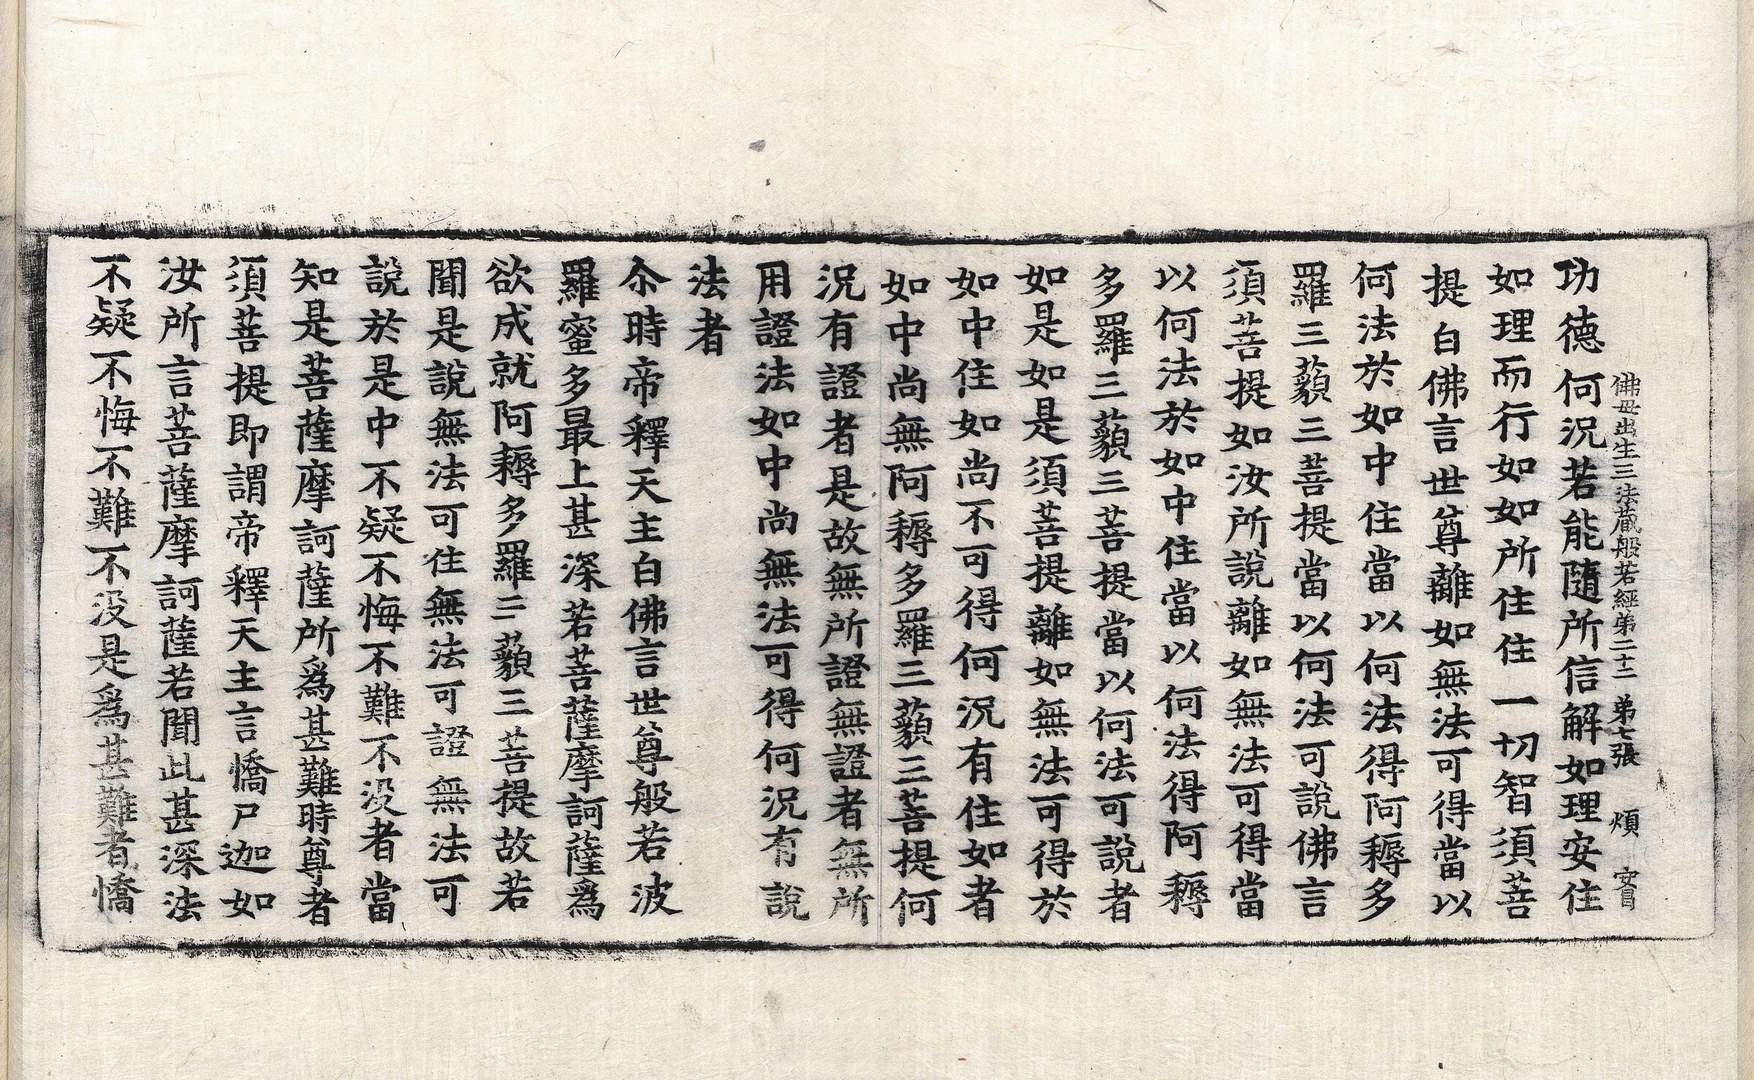 佛母出生三法藏般若經第二十二 第七張 煩
功德何況若能隨所信解如理安住
如理而行如如所住住一切智須菩
提白佛言世尊離如無法可得當以
何法於如中住當以何法得阿耨多
羅三藐三菩提當以何法可說佛言
須菩提如汝所說離如無法可得當
以何法於如中住當以何法得阿耨
多羅三藐三菩提當以何法可說者
如是如是須菩提離如無法可得於
如中住如尚不可得何況有住如者
如中尚無阿耨多羅三藐三菩提何
況有證者是故無所證無證者無所
用證法如中尚無法可得何況有說
法者
尒時帝釋天主白佛言世尊般若波
羅蜜多最上甚深若菩薩摩訶薩爲
欲成就阿耨多羅三藐三菩提故若
聞是說無法可住無法可證無法可
說於是中不疑不悔不難不沒者當
知是菩薩摩訶薩所爲甚難時尊者
須菩提即謂帝釋天主言憍尸迦如
汝所言菩薩摩訶薩若聞此甚深法
不疑不悔不難不沒是爲甚難者憍